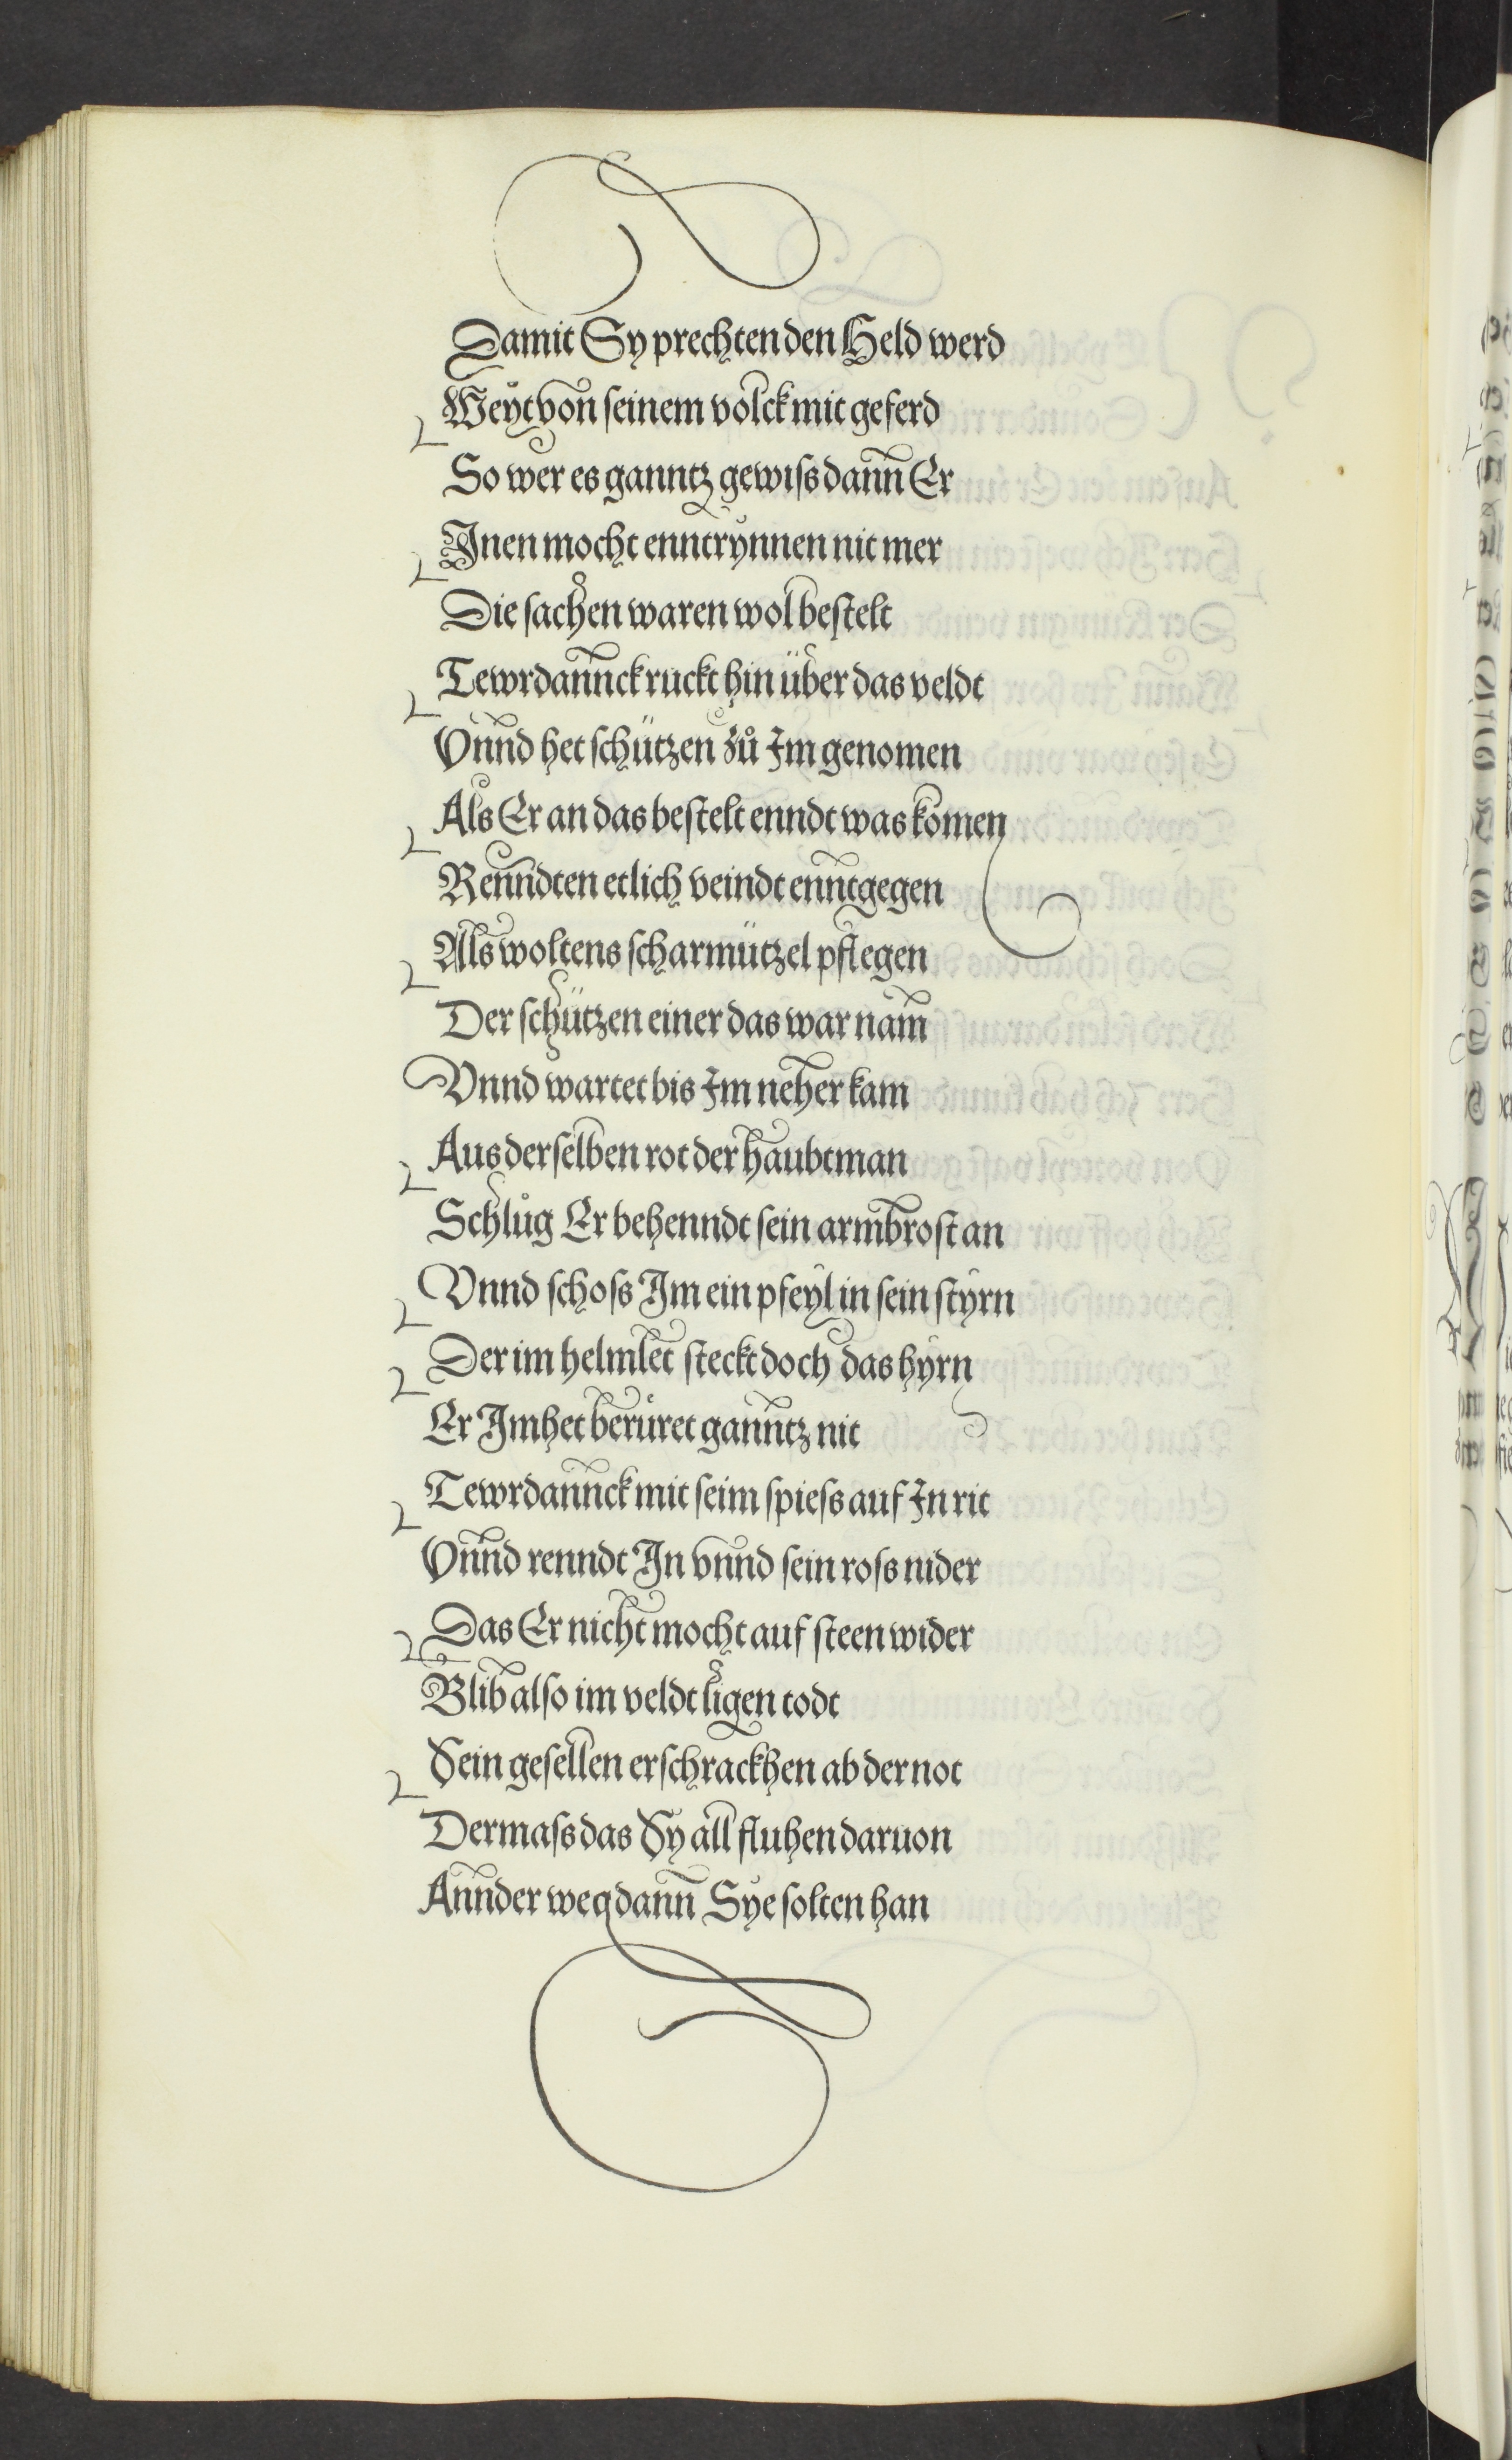 Damit Sy prechten den Held werd
Weyt von seinem volck mit geferd
So wer es ganntz gewiſs dann Er
Inen mocht enntrynnen nit mer
Die ſachen waren wol beſtelt
Tewrdannck ruckt hin über das veldt
Vnnd het ſchützen zů Im genomen
Als Er an das beſtelt enndt was komen
Renndten etlich veindt enntgegen
Als woltens ſcharmützel pflegen
Der ſchützen einer das war nam
Vnnd wartet bis Im neher kam
Aus derſelben rot der haubtman
Schlůg Er behenndt ſein armbroſt an
Vnnd ſchoſs Im ein pfeyl in ſein ſtyrn
Der im helmlet ſteckt doch das hyrn
Er Im het berüret ganntz nit
Tewrdannck mit ſeim ſpieſs auf In rit
Vnnd renndt In vnnd ſein roſs nider
Das Er nicht mocht auf ſteen wider
Blib alſo im veldt ligen todt
Sein geſellen erſchrackhen ab der not
Dermaſs das Sy all fluhen daruon
Annder weg dann Sye ſolten han